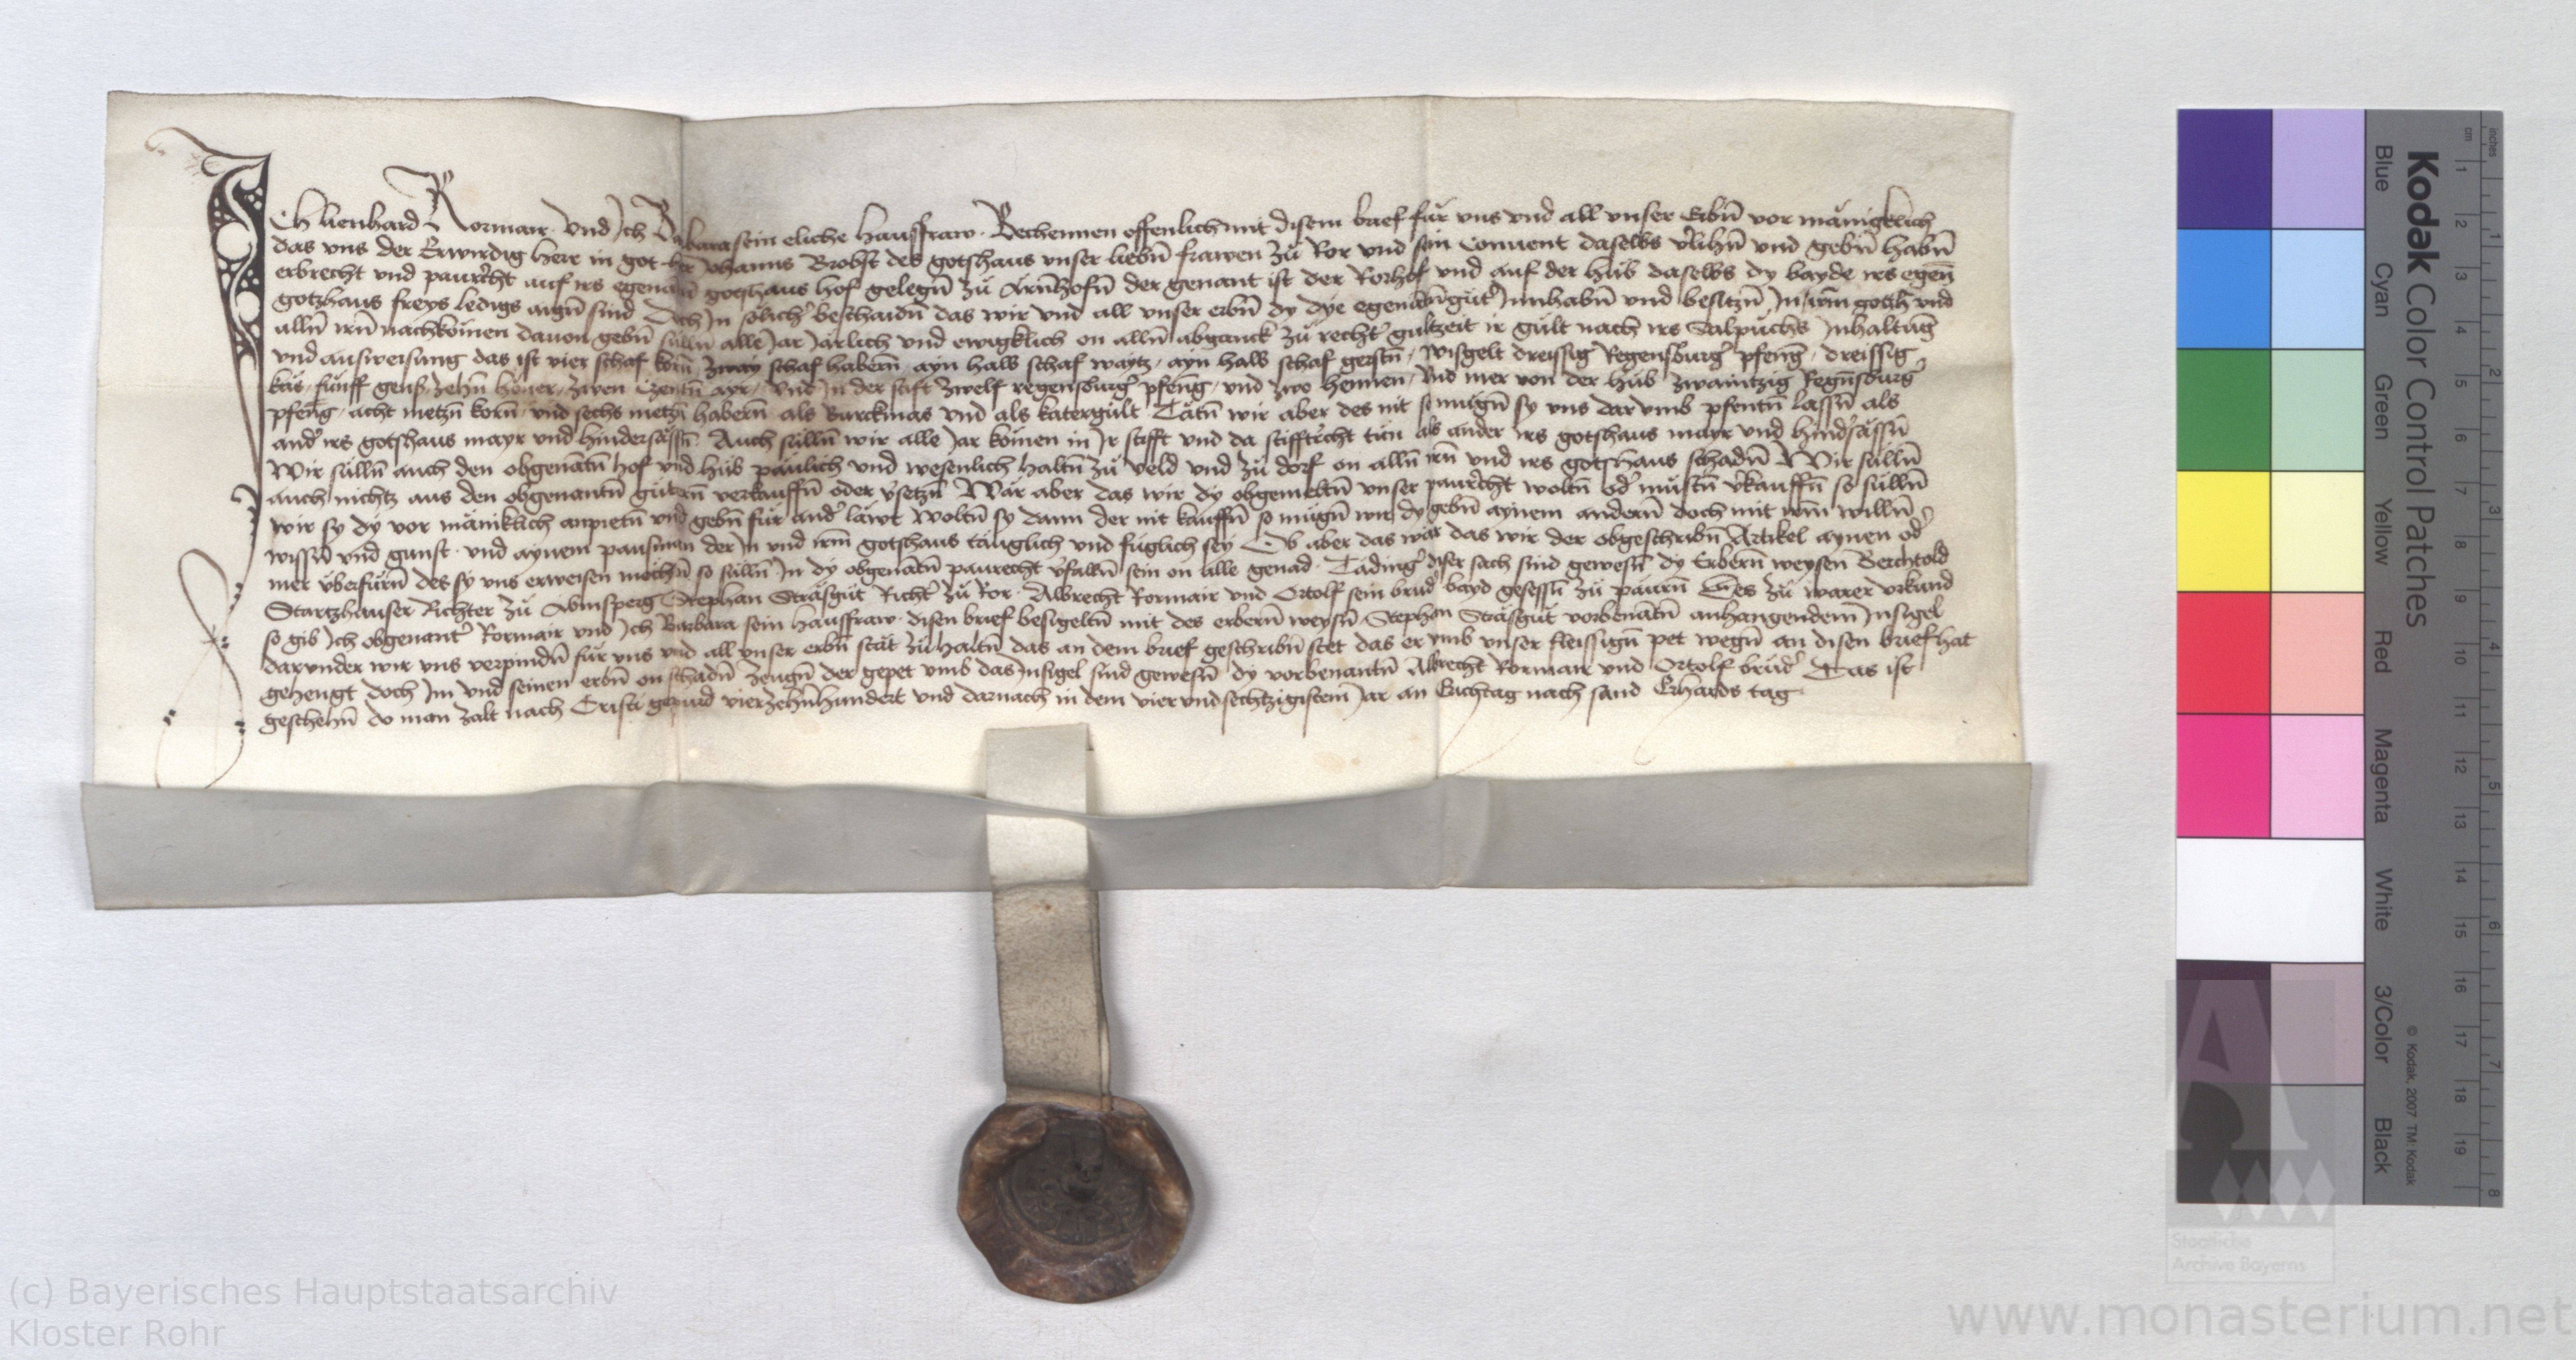 Ich lienhard Rormair Vnd Ich Barbara sein eliche hausfraw Bechennen offenlich mit disem brief für vns vnd all vnser Erbn̄ vor mänigklich
das vns der Erwirdig herr in got her Johanns Brobst des gotshaus vnser liebn̄ frawen zü Ror vnd sein Conuent daselbs v̓lihn̄ vnd gebn̄ habn̄
erbrecht vnd paurecht auf irs egenan̄ gotzhaus hof gelegn̄ zü Arn̄hofn̄ der genant ist der Rorhof vnd auf der hüb daselbs dy bayde irs egen̄
gotzhaus freys ledigs aign̄ sind Doch In sölich̓ beschaidn̄ das wir vnd all vnser erbn̄ dy dye egenan̄ güt̓ Innhabn̄ vnd besitzn̄ In irm̄ gotzh vnd
alln̄ irn̄ nachkömen dauon gebn̄ sülln̄ alle Jar Järlich vnd ewigklich on alln̄ abganck zü recht̓ gültzeit ir gült nach irs Salpüchs Inhaltūg
vnd ausweisung das ist vier schaf korn̄ zway schaf habern̄ ayn halb schaf waytz ayn halb schaf gerstn̄ wisgelt dreissig Regensburg̓ pfenḡ dreissig
käs fünff gens zehn̄ höner zwen Czentn̄ ayr Vnd In der stift zwelf regensburg̓ pfenḡ vnd zwo hennen Vnd mer von der hüb zwaintzig Regn̄sburg̓
pfenḡ acht metzn̄ korn̄ vnd sechs metzn̄ habern̄ als Burckmas vnd als katergült Tätn̄ wir aber des nit so mügn̄ sy vns dar vmb pfentn̄ lassn̄ als
and̓ irs gotshaus mayr vnd hindersässn̄ Auch sülln̄ wir alle Jar kömen in Ir stifft vnd da stifftrecht tün als ander irs gotshaus mayr vnd hind̓sässn̄
Wir sülln̄ auch den obgenātn̄ hof vnd hüb päulich vnd wesenlich haltn̄ zü veld vnd zü dorf on alln̄ irn̄ vnd irs gotshaus schadn̄ Wir sülln̄
auch nichtz aus den obgenantn̄ gütern̄ verkauffn̄ oder v̓setzn̄ Wär aber das wir dy obgemeltn̄ vnser paurecht woltn̄ od̓ müstn̄ v̓kauffn̄ so sülln̄
wir sy dy vor mäniklich anpietn̄ vnd gebn̄ für and̓ läwt Woltn̄ sy dann der nit kauffn̄ so mügn̄ wir dy gebn̄ aynem andern̄ doch mit irm̄ willn̄
wissn̄ vnd gunst vnd aynem pausman der In vnd irm̄ gotshaus täuglich vnd füglich sey Ob aber das wär das wir der obgeschribn̄ Artikel aynen od̓
mer überfürn̄ des sy vns erweisen möchn̄ so sülln̄ In dy obgenātn̄ paurecht v̓falln̄ sein on alle genad Täding̓ diser sach sind gewesn̄ dy Erbern̄ weysen Berchtold
Startzhauser Richter zü Abmsperg Stephan Sträsgüt Richt̓ zü Ror Albrecht Rormair vnd Ortolf sein brüd̓ bayd gesessn̄ zü päurn̄ Des zü warer vrkund
so gib Ich obgenant̓ Rormair vnd Ich Barbara sein hausfraw disen brief besigeltn̄ mit des erbern̄ weysn̄ Stephan Sträsgüt vorbenātn̄ anhangendem Insigel
darvnder wir vns verpindn̄ für vns vnd all vnser erbn̄ stät zü haltn̄ das an dem brief geschribn̄ stet das er vmb vnser fleissign̄ pet wegn̄ an disen brief hat
gehengt doch Im vnd seinen erbn̄ on schadn̄ zeugn̄ der gepet vmb das Insigel sind gewesn̄ dy vorbenantn̄ Albrecht Rormair vnd Ortolf brüd̓ Das ist
geschehn̄ do man zalt nach Cristi gepurd vierzehn̄hundert vnd darnach in dem vier vnd sechtzigistem Jar an Erichtag nach sand Erhards tag
Kodak Color Control Patches
Blue Cyan Green Yellow Red Magenta White 3/Color Black
© Kodak, 2007 TM: Kodak
cm 1 2 3 4 5 6 7 8 9 10 11 12 13 14 15 16 17 18 19
inches 1 2 3 4 5 6 7 8
Staatliche
Archive Bayerns
(c) Bayerisches Hauptstaatsarchiv
Kloster Rohr
www.monasterium.net